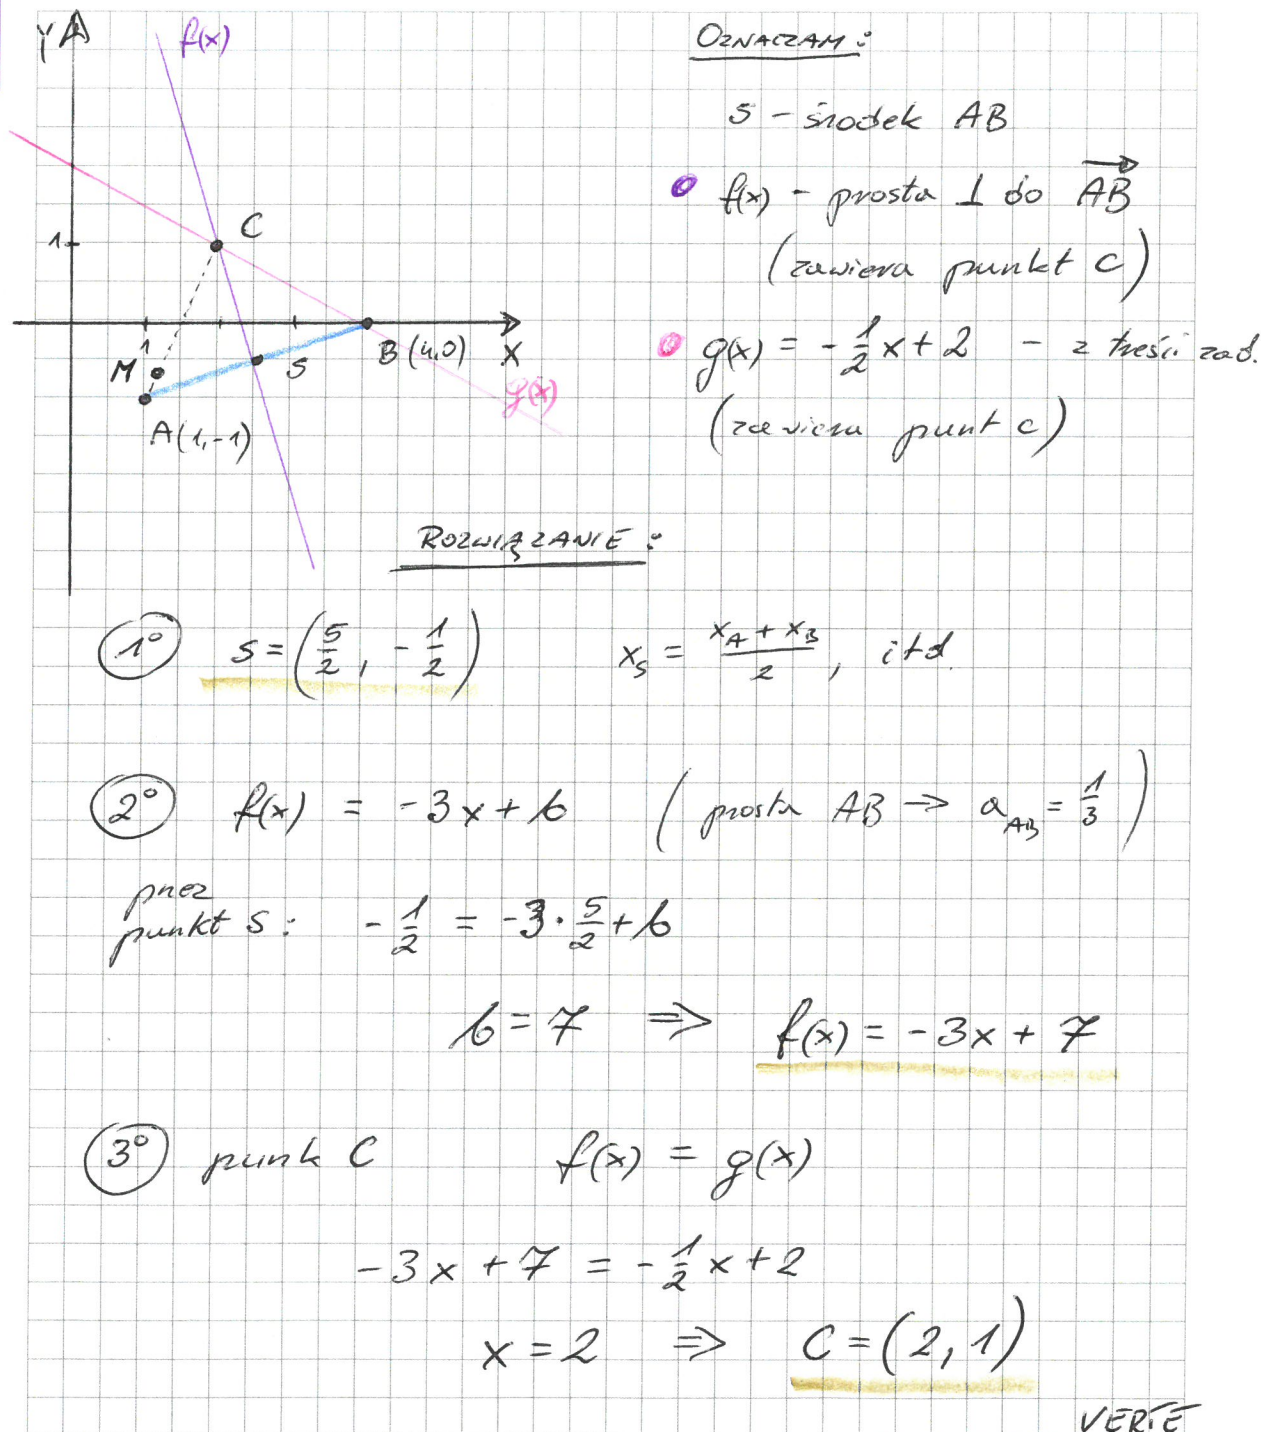 YA
f(x)
C
1
1
M
S
B (4,0)
X
g(x)
A(1,-1)
OZNACZAM:
S - środek AB
f(x) - prosta ⊥ do AB
(zawiera punkt C)
g(x) = -1/2 x + 2 - z treści zad.
(zawiera punt C)
ROZWIĄZANIE:
1° S = (5/2, -1/2) x_S = (x_A + x_B)/2, itd.
2° f(x) = -3x + b (prosta AB → a_AB = 1/3)
przez
punkt S: -1/2 = -3 · 5/2 + b
b = 7 ⇒ f(x) = -3x + 7
3° punk C f(x) = g(x)
-3x + 7 = -1/2 x + 2
x = 2 ⇒ C = (2, 1)
VERTE